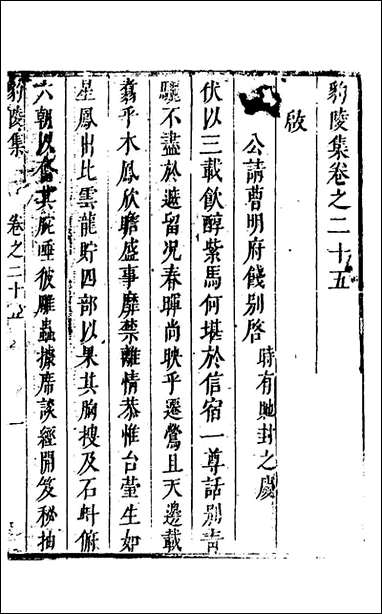 豹陵集卷之二十五
啟
公請曹明府餞別啓 時有貤封之慶
伏以三載飲醇紫馬何堪於信宿一尊話別青
驪不盡於遊留况春暉尚映乎遷鶯且天邊載
翥乎木鳳欣瞻盛事靡禁離情恭惟台瑩生如
星鳳出比雲龍貯四部以果其胸搜及石蚪俯
六朝以奮其脫唾彼雕蟲據席談經開笈秘抽
豹陵集 卷之二十五 一